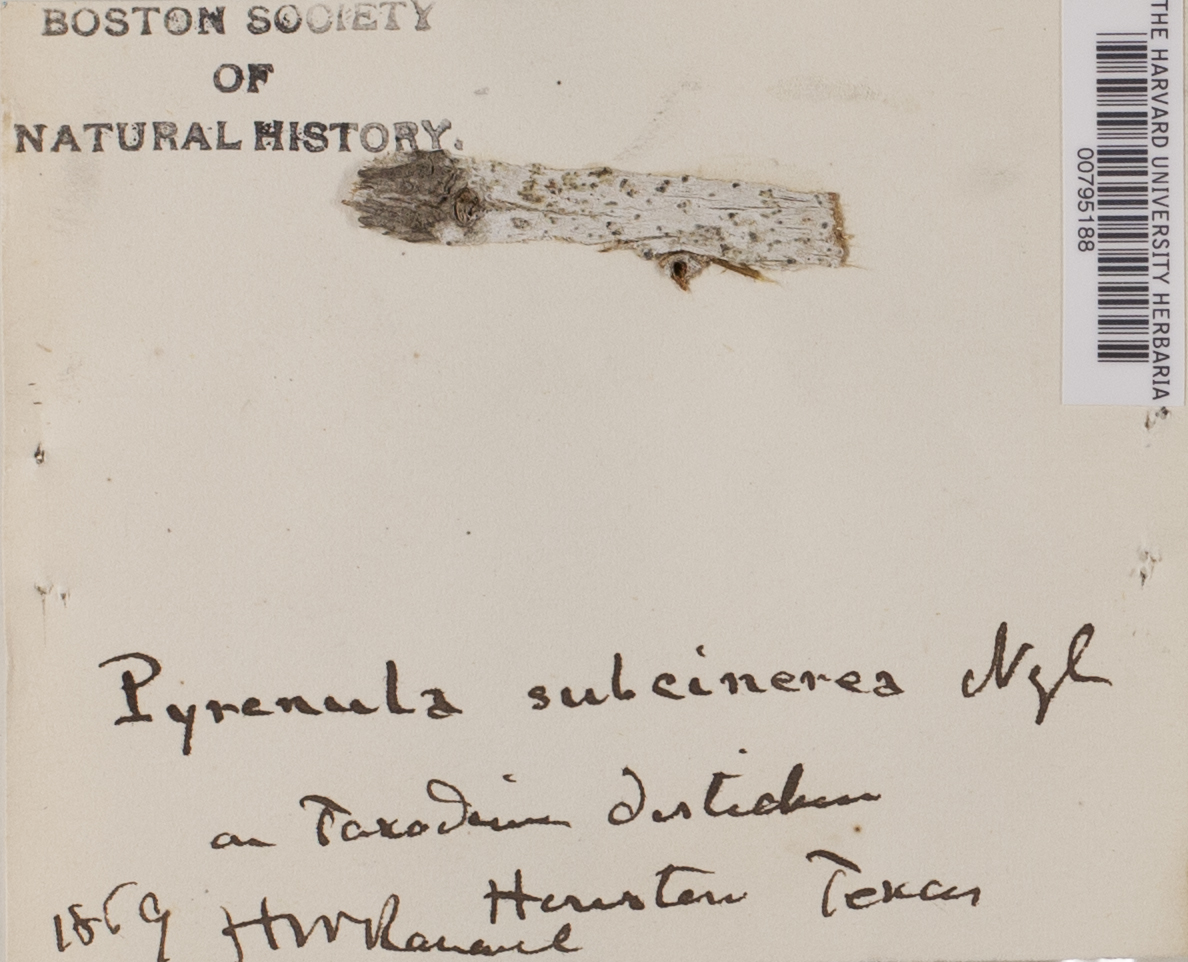 BOSTON SOCIETY
OF
NATURAL HISTORY.
THE HARVARD UNIVERSITY HERBARIA
00795188
Pyrenula subcinerea Nyl
on Taxodium distichum
Houston Texas
1869 HWRavenel